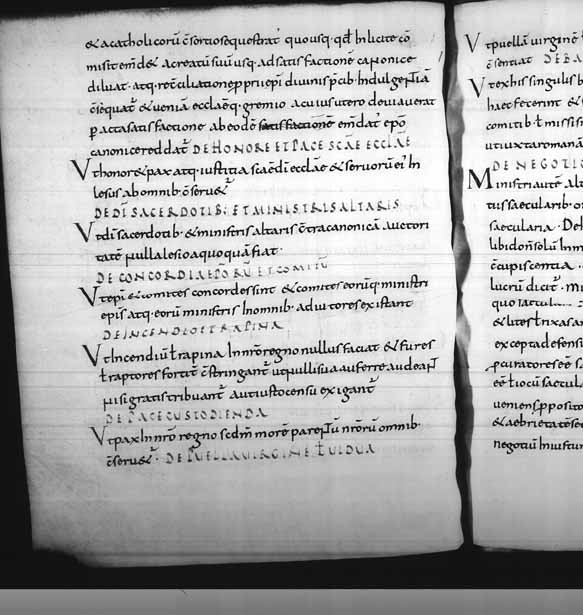 & acatholicorū c̄sortio sequestrat̄ quousq; qd̄ Inlicite cō
misit emd& acreatū suū usq; ad satisfactionē canonice
diluat· atq; reciliationē p priepi diuinis pcib; Indulgentiā
c̄sequat̄ & ueniā ecclae q; gremio a cuius utero deuiauerat
p acta satisfactione ab eodē satisfactionē emdat̄ epō
canonice reddat̄ DE HONORE ET PACE SCAE ECCLAE
Vt honor & pax atq; iustitia scae dī ecclae & seruorū ei' In
lesus ab omnib; c̄seru&̄
DE DĪ SACERDOTIB; ET MINISTRIS ALTARIS
Vt dī sacerdotib; & ministris altaris c̄tra canonicā auctori
tatē nulla lesio a quoquā fiat·
DE CONCORDIA EPORŪ ET COMITŪ
Vt epi & comites concordes sint & comites eorūq; ministri
epis atq; eorū ministris Inomnib; adiutores existant
DE INCENDIO ET RAPINA
Vt Incendiū ł rapina Innrō regno nullus faciat & fures
ł raptores fortit̄ c̄stringant̄ ut p ullis sua auferre audeant
nisi gratis tribuant̄ aut iusto censu exigant̄
DE PACE CUSTODIENDA
Vt pax Innrō regno scdm̄ morē parentū nrōrū omnib;
c̄seru&̄· DE PUELLA VIRGINE ł UIDUA
Vt puellā uirginē
c̄sentiat DE BA
Vt ex his singulis b
haec fecerint &
comitib; ł missis
ut iuxta romanā
DE NEGOTIO
Ministri autē alt
tus saecularib; o
saecularia· De
libidon solū Inm
c̄cupiscentia
lucrū dicit̄· mi
quo iactu
& lites ł rixas a
excepta defens
pcuratores eē s
eē ł ocū saecul
uemens p posito
& aebrietatē se
negotiū Iniustū